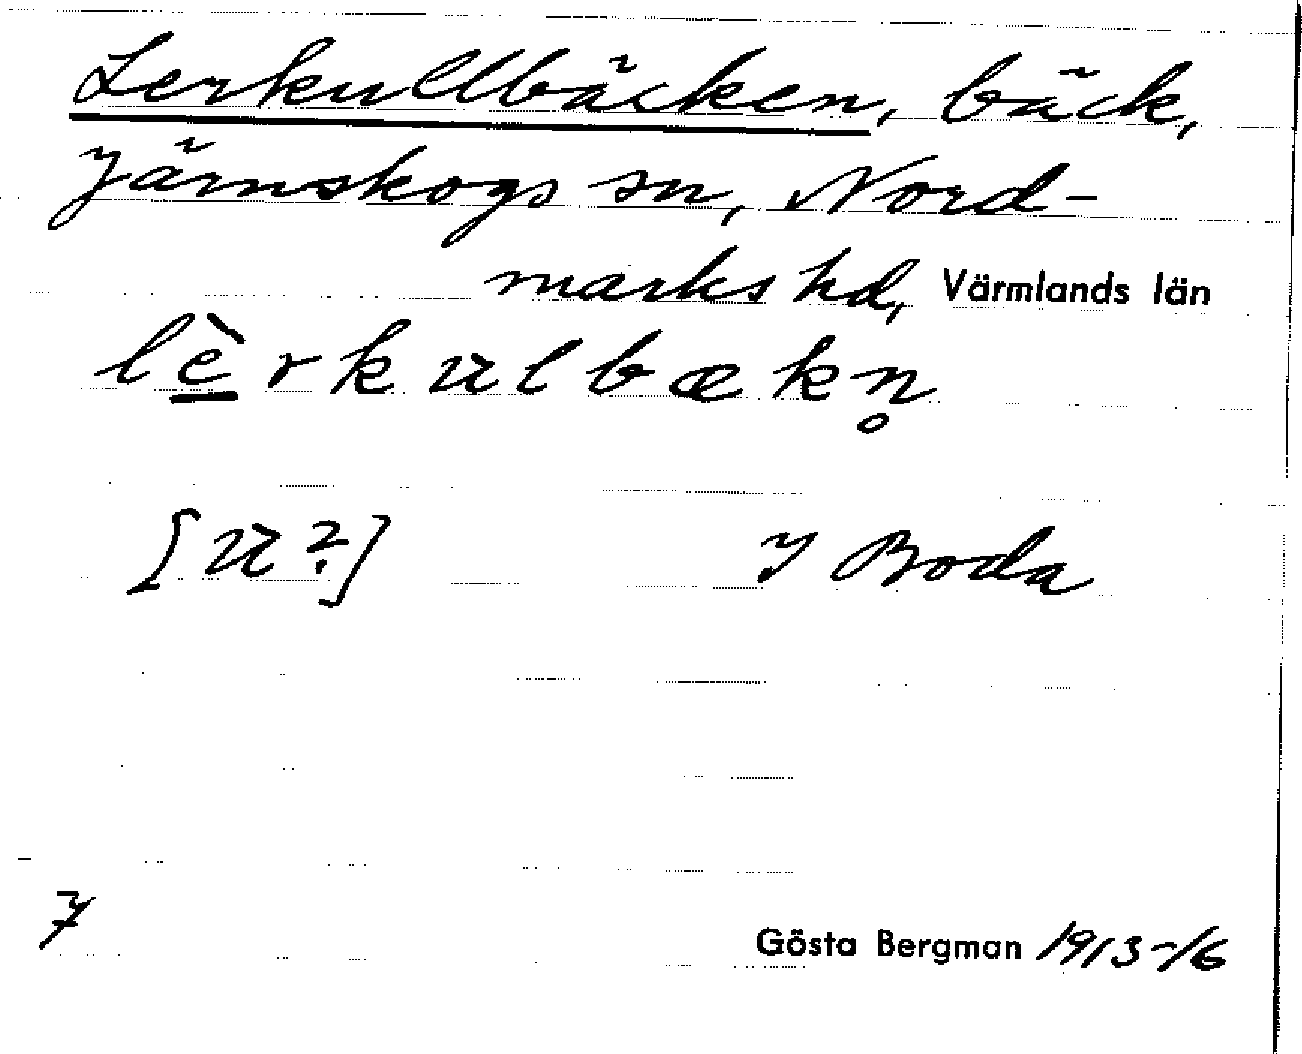 Lerkullbäcken, bäck,
Järnskogs sn, Nord-
marks hd, Värmlands län
lèrkulbækn̥
[u?] I Boda
7
Gösta Bergman 1913-16